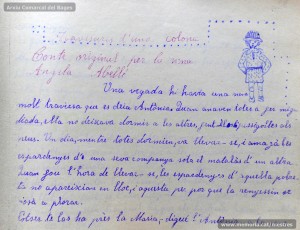 Arxiu Comarcal del Bages
Records d'una colona
Conte original per la nena
Angela Abelló
Una vegada hi havia una nena
molt traviesa que es deia Antònia. Quan anaven totes a fer mig
diada, ella no deixava dormir a les altres, fent-los pessigolles als
peus. Un dia, mentre totes dormien, va llevar-se, i amagà les
espardenyes d'una seva companya sota el matalàs d'un altra.
Quan fou l'hora de llevar-se, les espardenyes d'aquella pobra
no apareixian en lloc, i aquesta per por que la renyessin es
posà a plorar.
la Maria, digué l'Antònia
www.memoria.cat/mestres